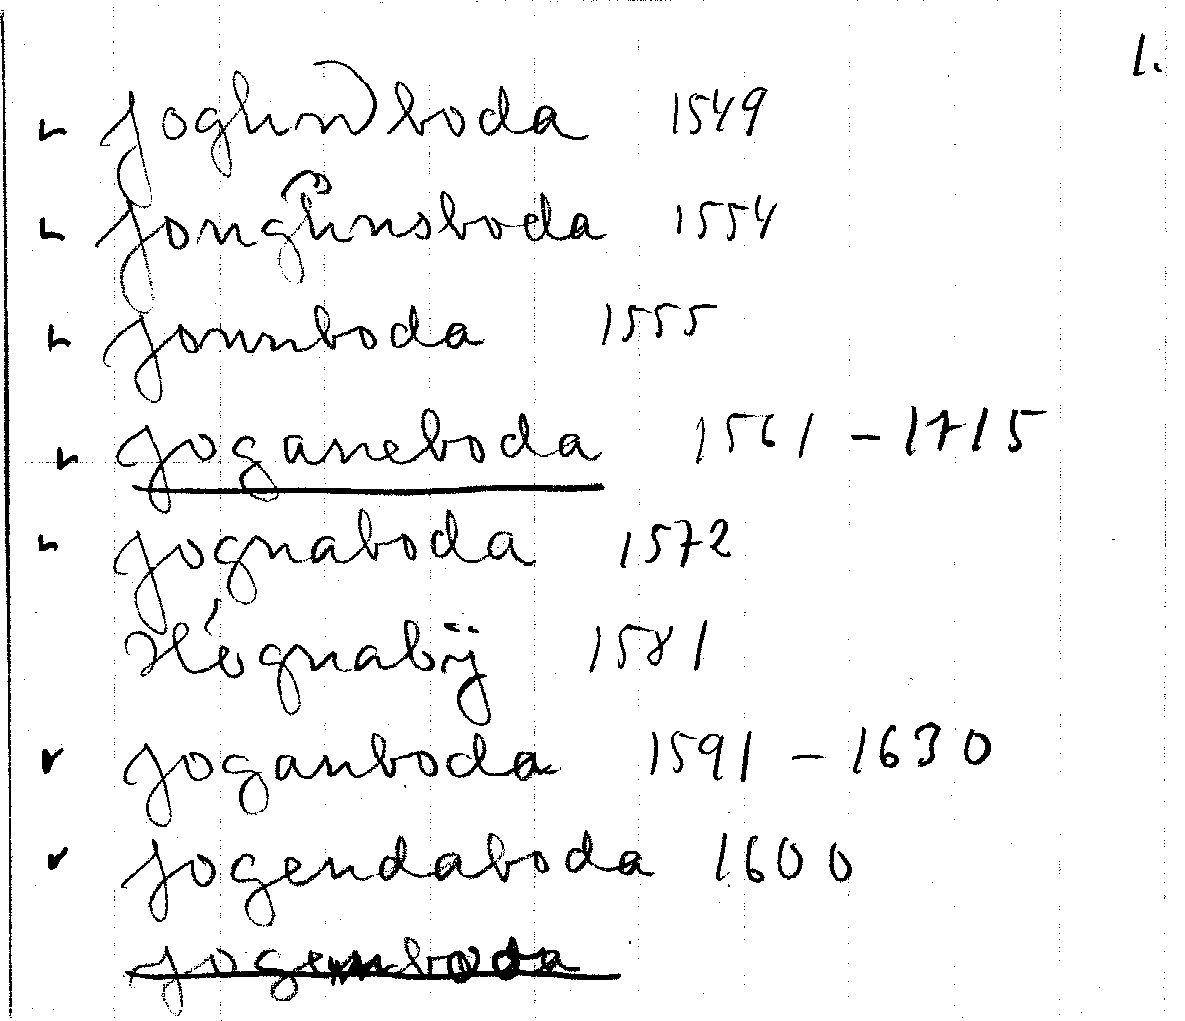 1.
joghnboda 1549
jonghnsboda 1554
jonnboda 1555
joganeboda 1561 – 1715
jognaboda 1572
Hógnabÿ 1581
joganboda 1591 – 1630
jogendaboda 1600
jogenboda